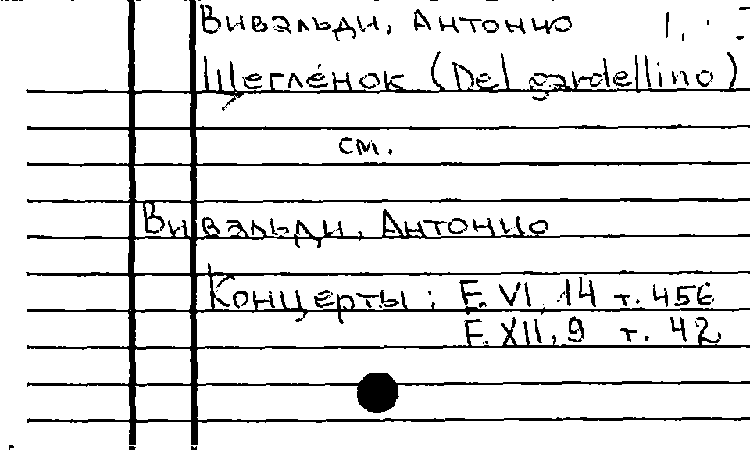 Вивальди, Антонио
Щеглёнок (Del gardellino)
см.
Вивальди, Антонио
Концерты: F. VI, 14 т. 456
F. XII, 9 т. 42